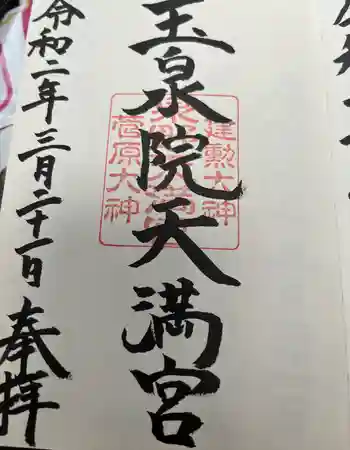 玉泉院天満宮
建勲大神
菅原大神
令和二年三月二十一日 奉拝